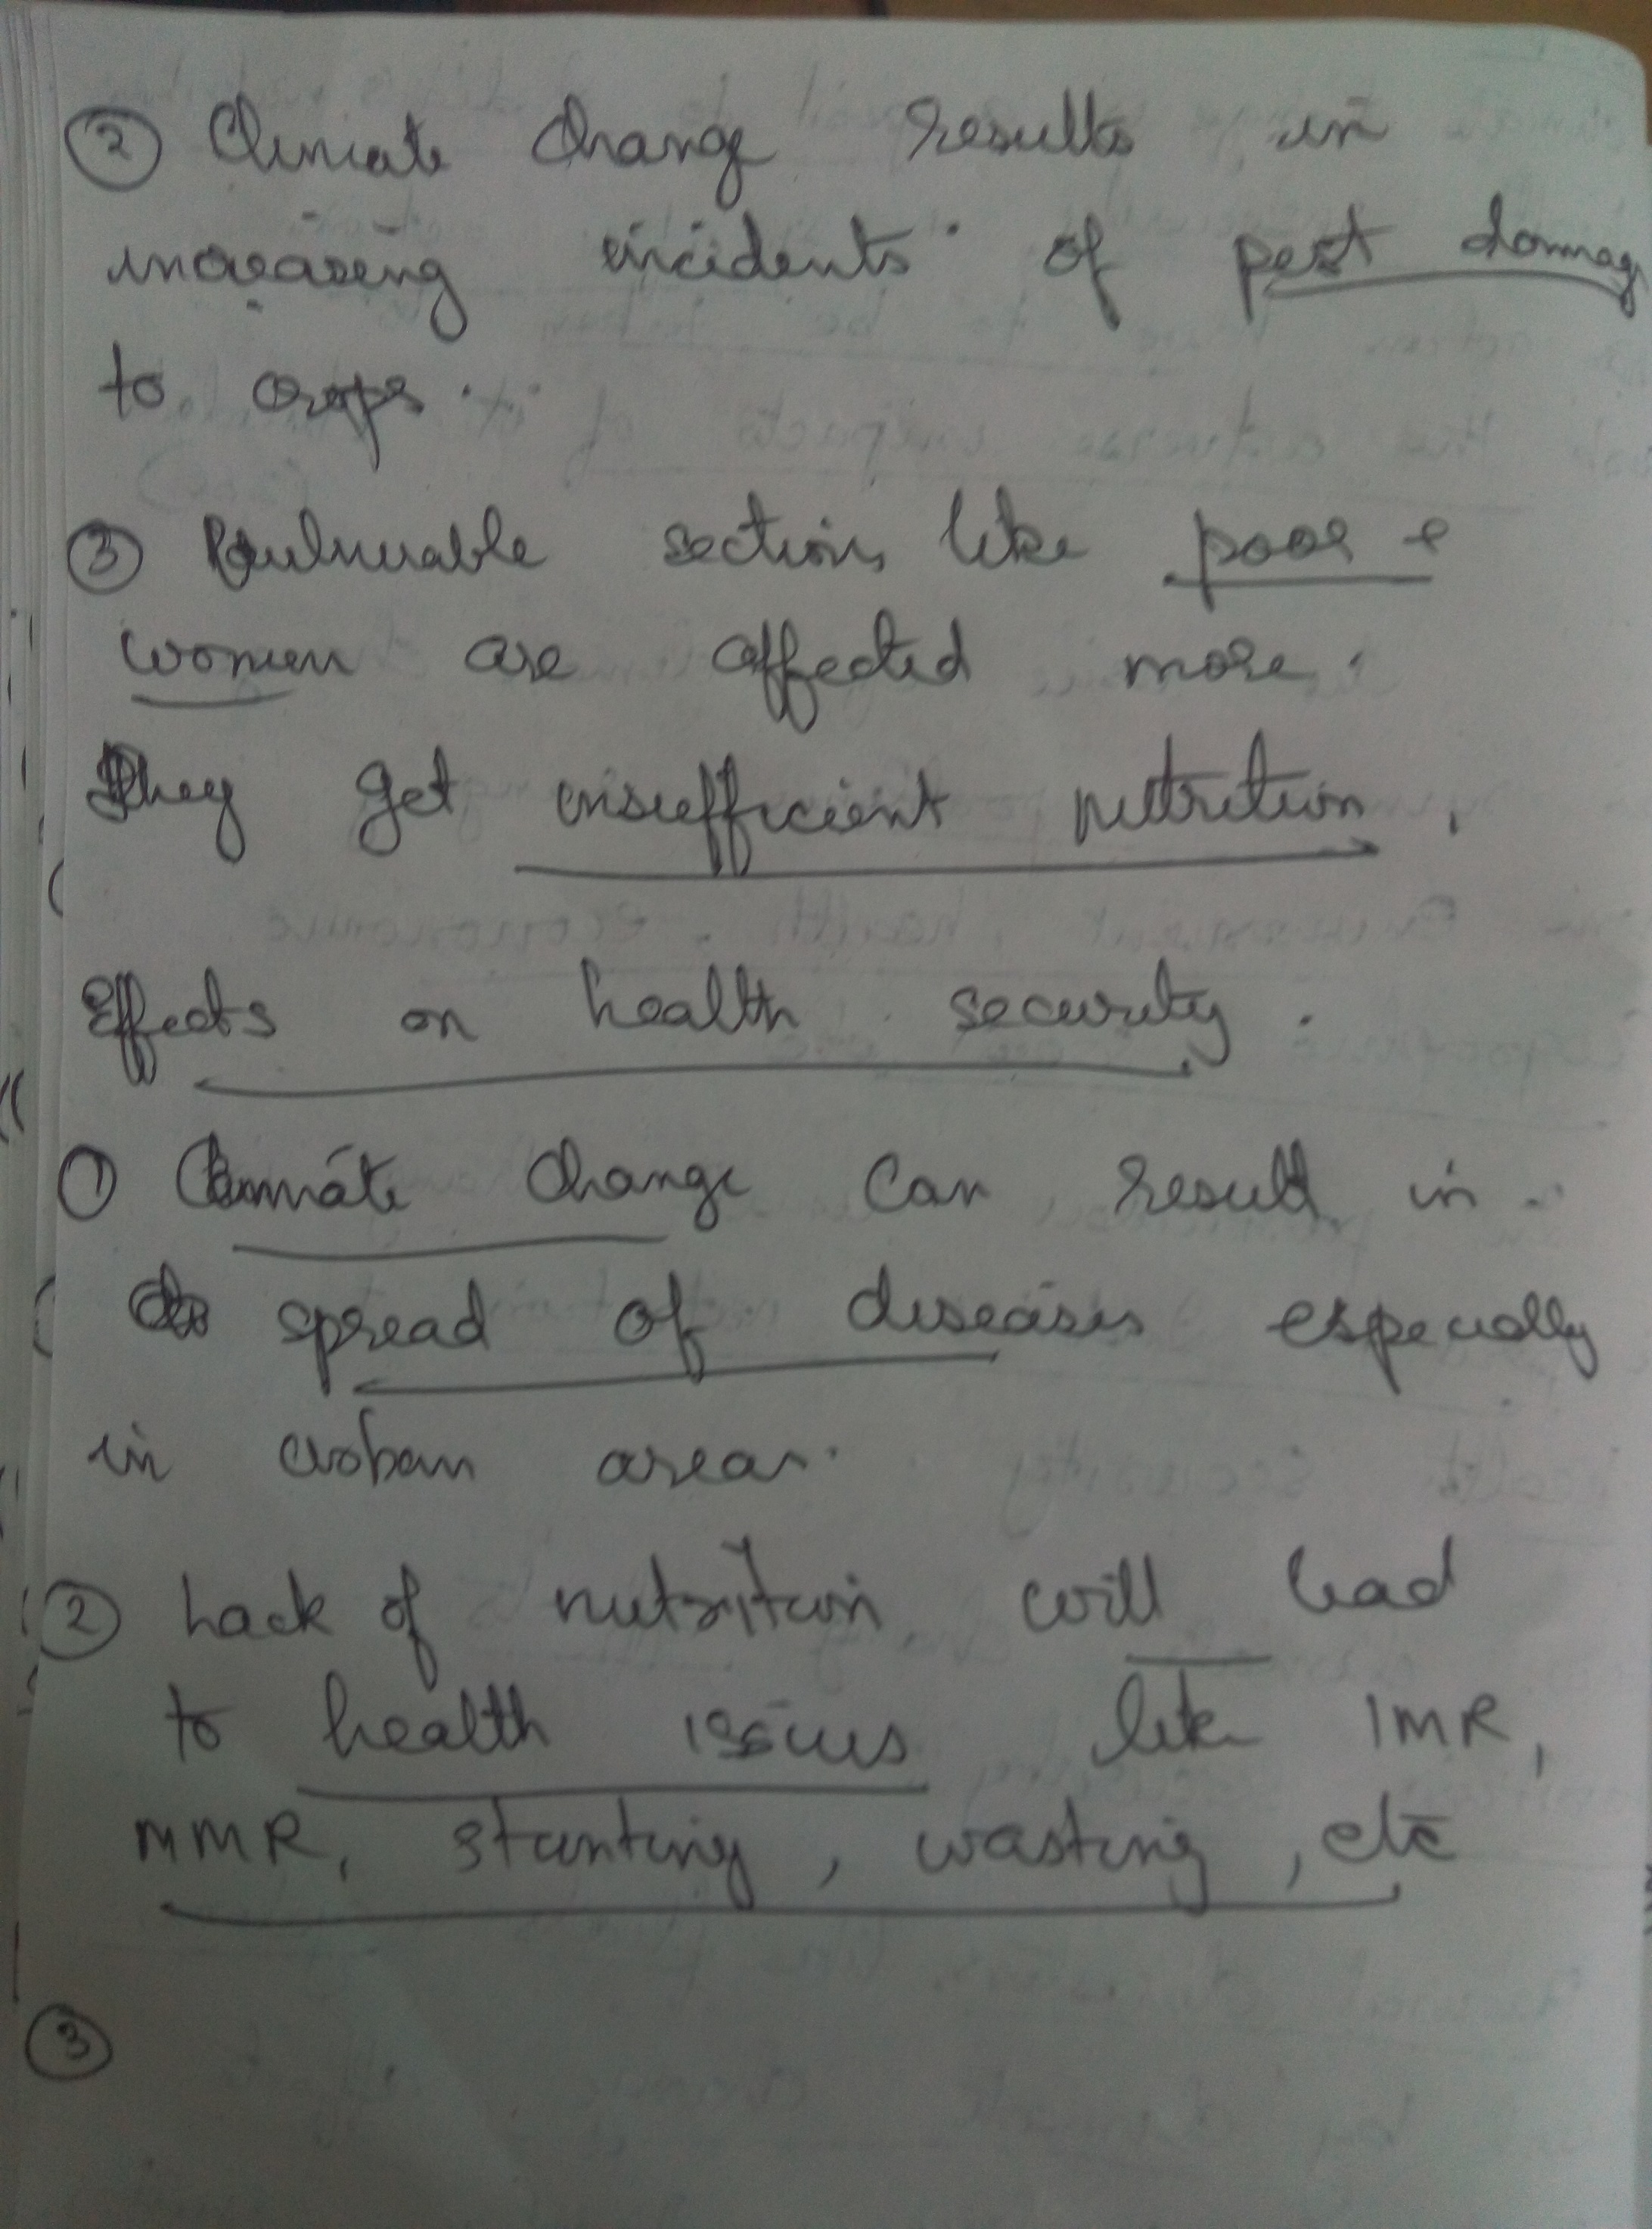 ② Climate change results in
increasing incidents of pest damag
to crops.
③ Vulnerable sections like poor &
women are affected more.
They get insufficient nutrition.
Effects on health security.
① Climate change can result in
spread of diseases especially
in urban areas.
② Lack of nutrition will lead
to health issues like IMR,
MMR, stunting, wasting, etc
③